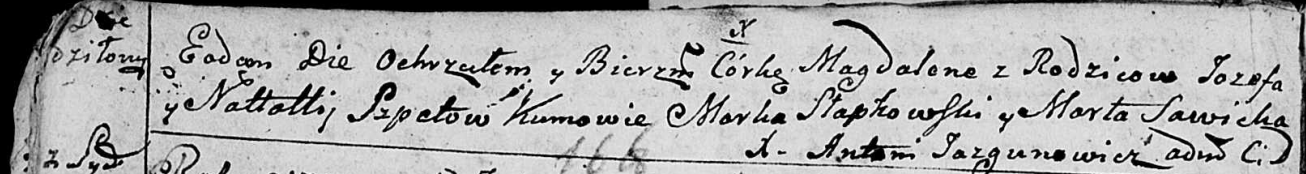 dziłowy
Eodem Die Ochrzciłem y Bierzm Córkę Magdalene z Rodzicow Jozefa
y Nattallij Szpetow Kumowie Marka Słapkowski y Marta Sawicka
X. Antoni Jazgunowicz adm C